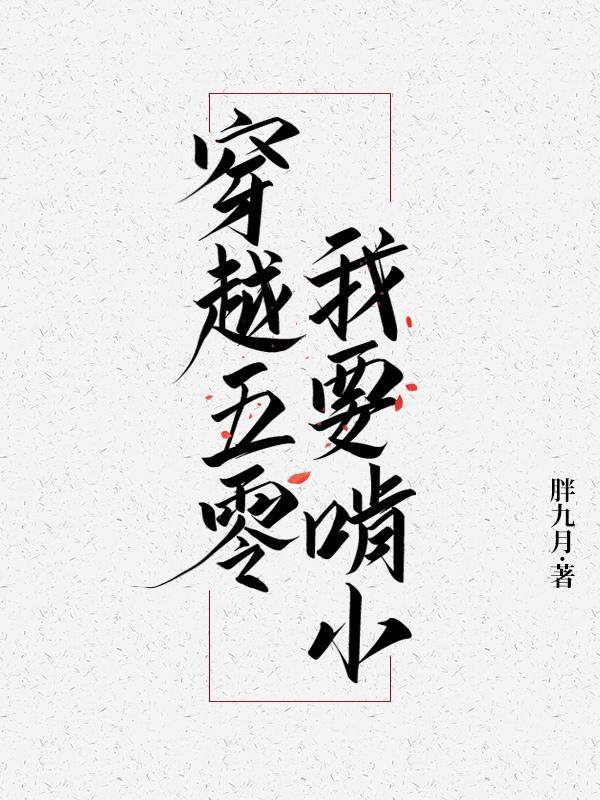 穿越五零
我要啃小
胖九月·著